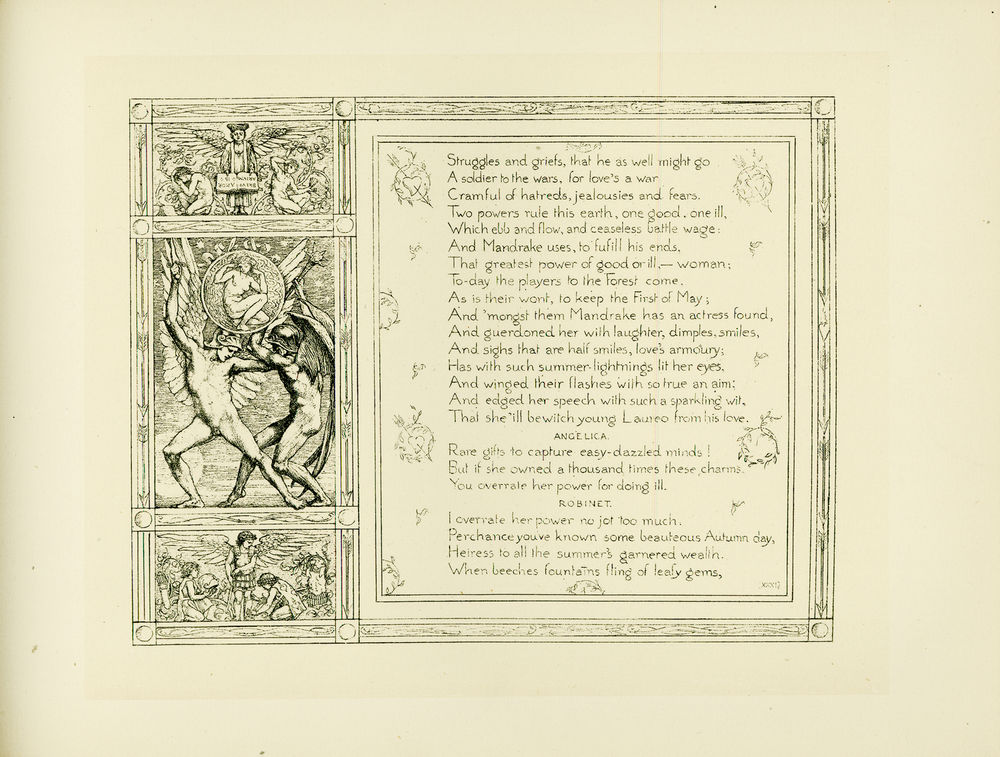 Struggles and griefs, that he as well might go
A soldier to the wars, for love's a war
Cramful of hatreds, jealousies and fears.
Two powers rule this earth, one good, one ill,
Which ebb and flow, and ceaseless battle wage:
And Mandrake uses, to fufill his ends,
That greatest power of good or ill,— woman;
To-day the players to the Forest come,
As is their wont, to keep the First of May;
And 'mongst them Mandrake has an actress found,
And guerdoned her with laughter, dimples, smiles,
And sighs that are half smiles, love's armoury;
Has with such summer-lightnings lit her eyes,
And winged their flashes with so true an aim;
And edged her speech with such a sparkling wit,
That she'ill bewitch young Laureo from his love.
ANGELICA.
Rare gifts to capture easy-dazzled minds !
But if she owned a thousand times these charms.
You overrate her power for doing ill.
ROBINET.
I overrate her power no jot too much.
Perchance youve known some beauteous Autumn day,
Heiress to all the summer's garnered wealth.
When beeches fountains fling of leafy gems,